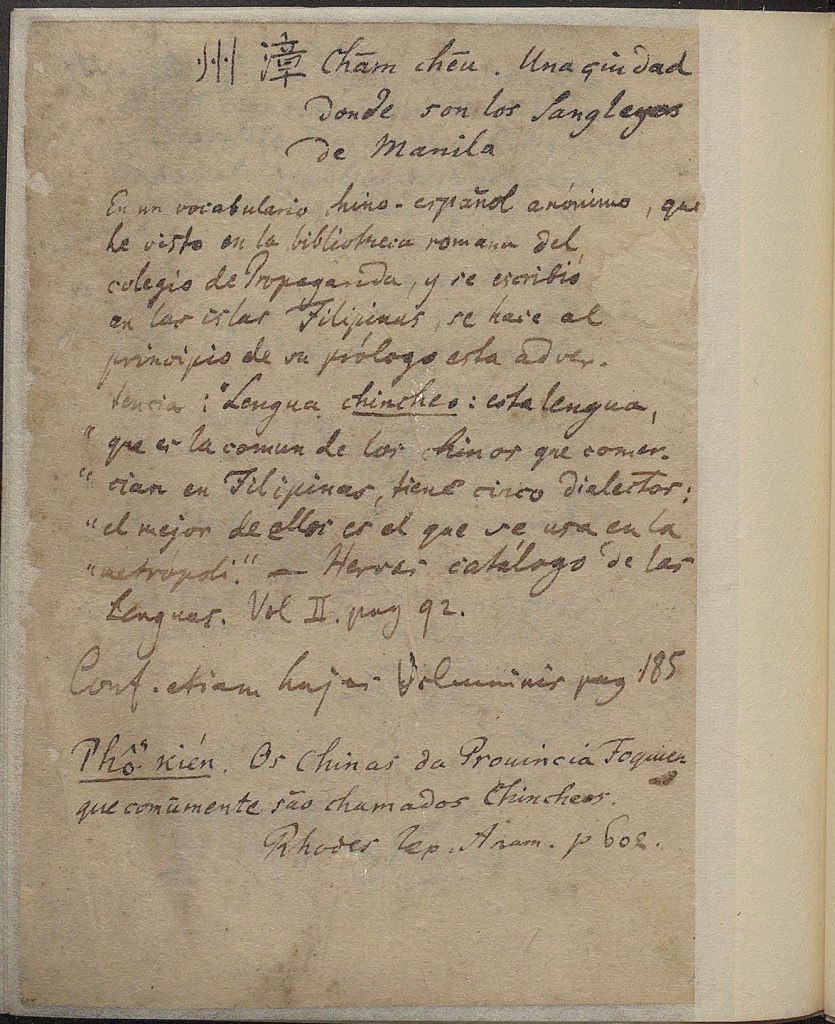 州 漳 Chām chēu. Una çiudad
donde son los Sangleyes
de Manila
En un vocabulario chino-español anónimo, que
he visto en la biblioteca romana del
colegio de Propaganda, y se escribió
en las islas Filipinas, se hace al
principio de su prólogo esta adver-
tencia: "Lengua chincheo: esta lengua,
" que es la comun de los chinos que comer-
" cian en Filipinas, tiene cinco dialectos:
" el mejor de ellos es el que se usa en la
" metrópoli." — Hervas catálogo de las
Lenguas. Vol II. pag 92.
Conf. etiam hujus Voluminis pag 185
Phô kién. Os Chinas da Prouincia Foquien
que comūmente são chamados Chincheos.
Rhodes Lex. Anam. p 602.